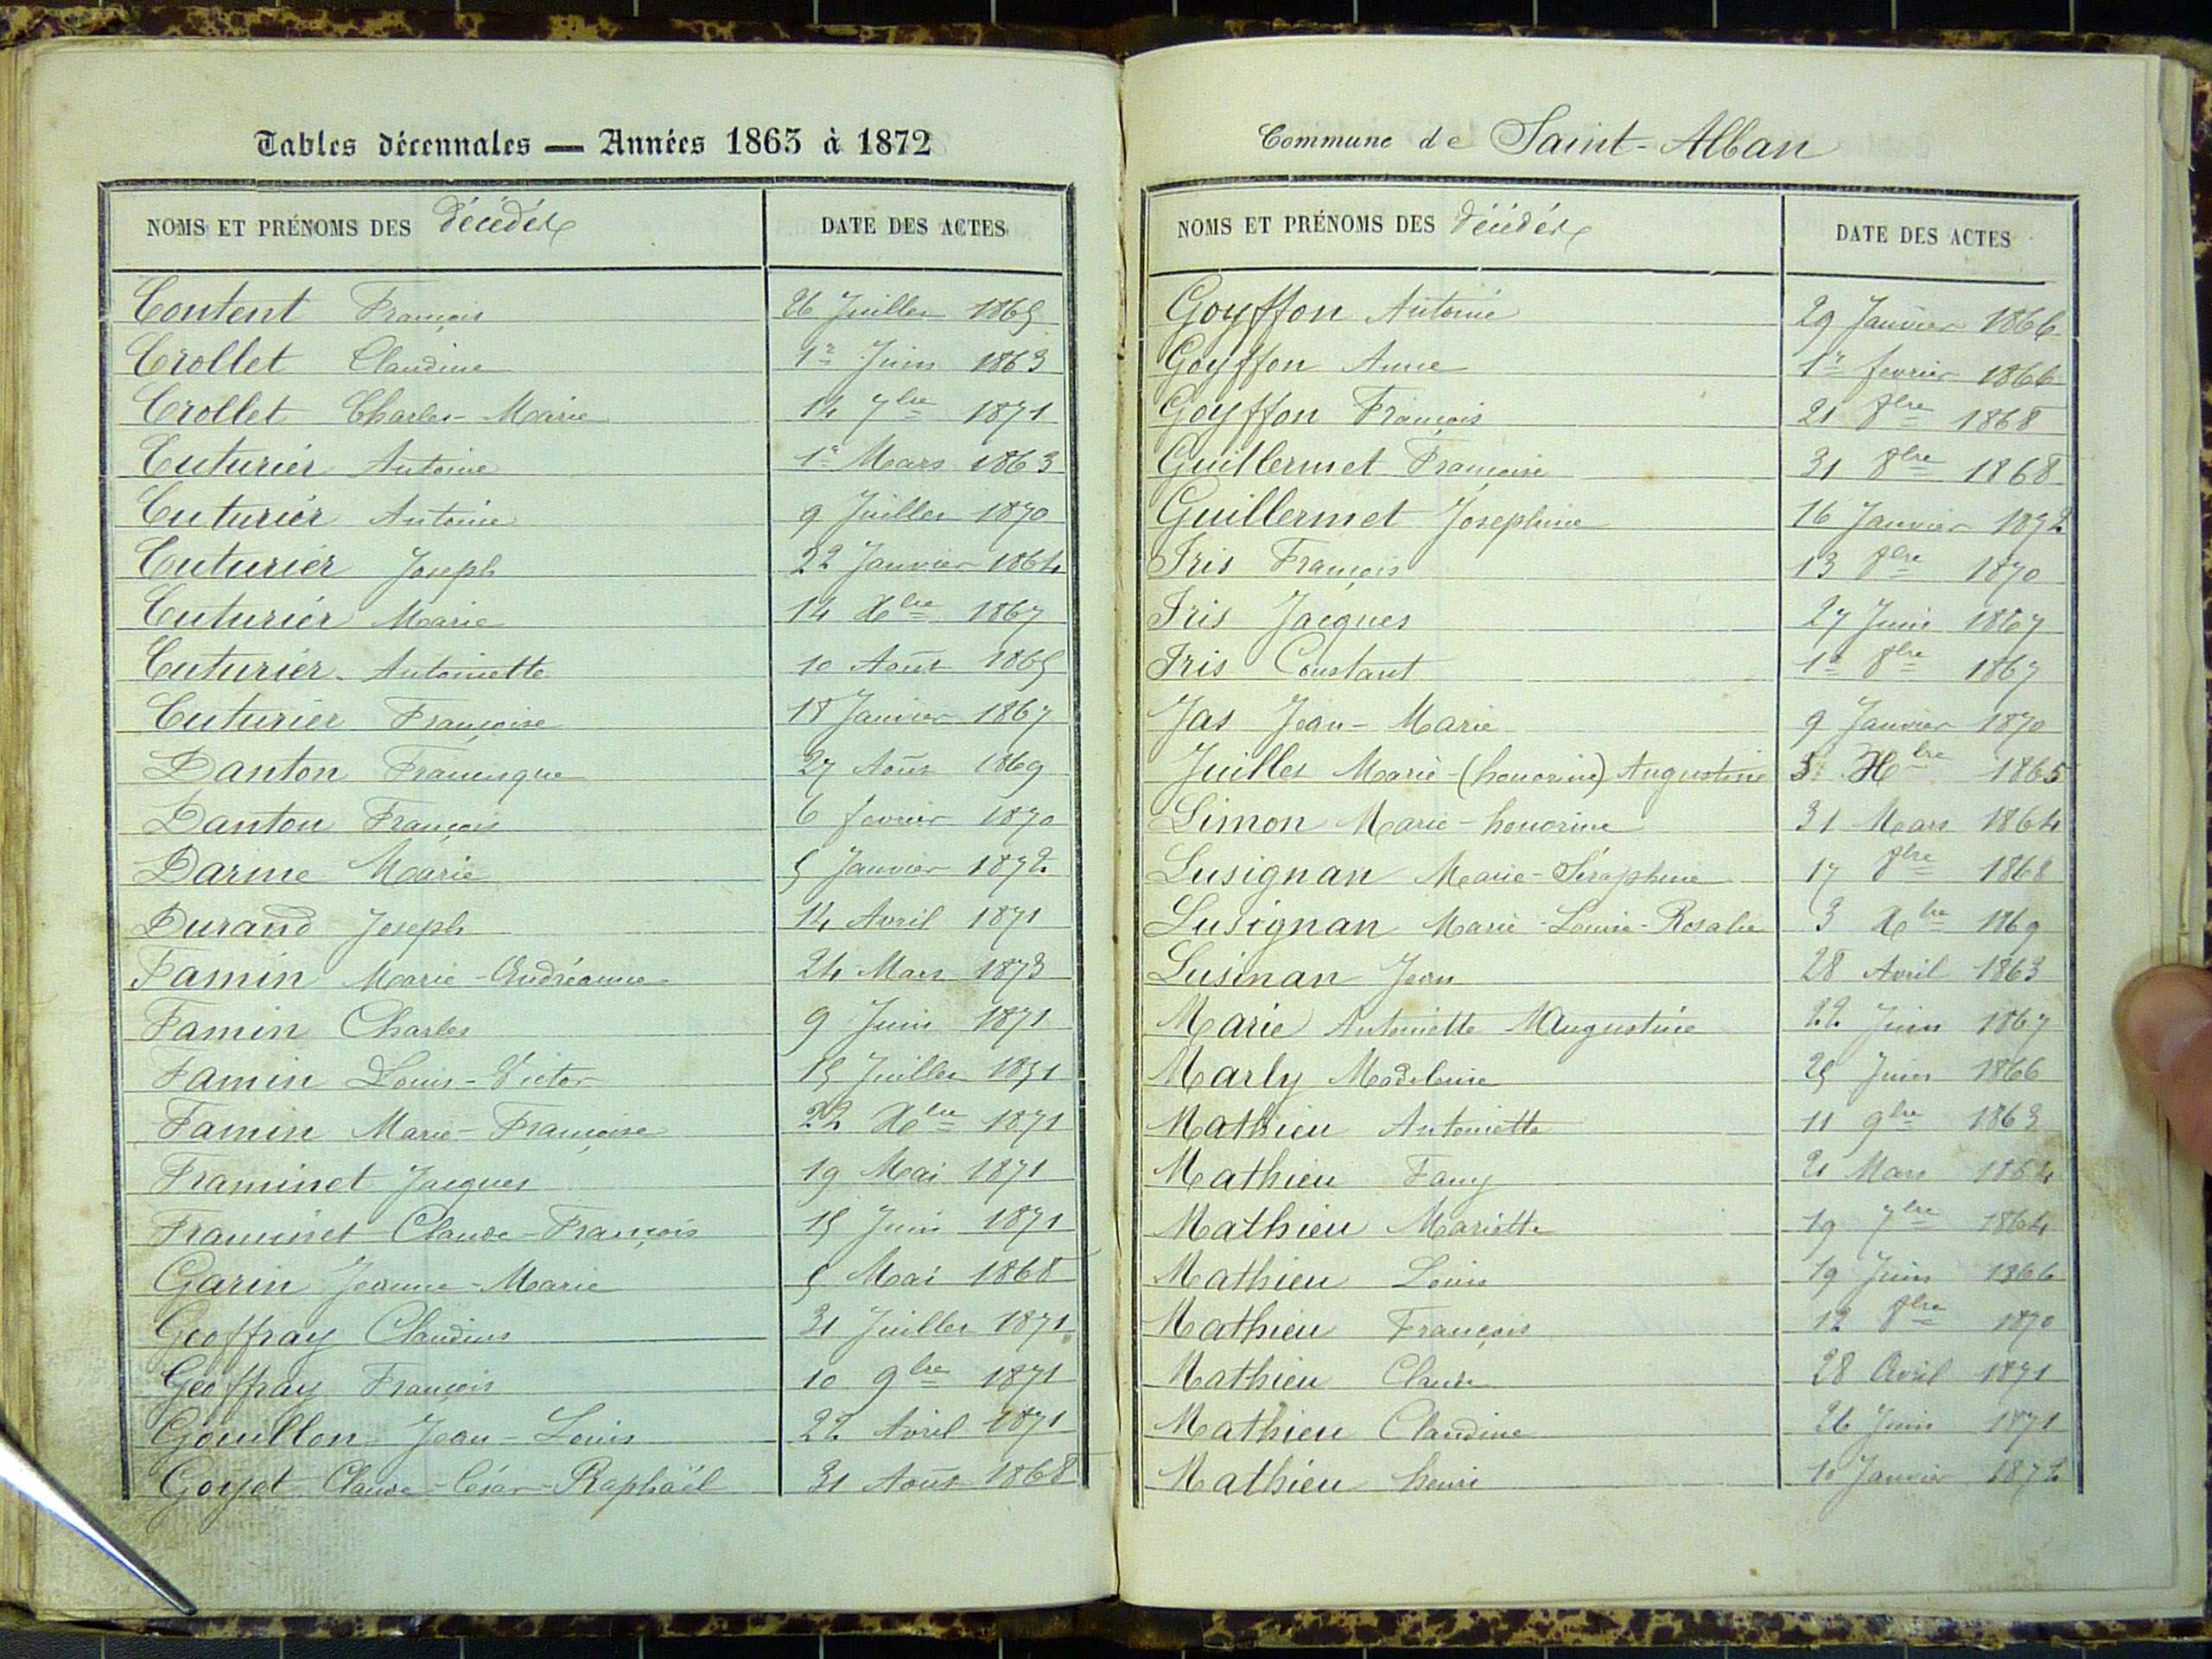 Tables décennales — Années 1863 à 1872
NOMS ET PRÉNOMS DES décédés DATE DES ACTES
Content François 26 Juillet 1865
Crollet Claudine 1er Juin 1863
Crollet Charles-Marie 14 7bre 1871
Cuturier Antoine 1er Mars 1863
Cuturier Antoine 9 Juillet 1870
Cuturier Joseph 22 Janvier 1864
Cuturier Marie 14 Xbre 1867
Cuturier Antoinette 10 Août 1865
Cuturier Françoise 18 Janvier 1867
Danton Francisque 27 Août 1869
Danton François 6 fevrier 1870
Darme Marie 5 Janvier 1872
Durand Joseph 14 Avril 1871
Famin Marie-Andréanne 24 Mars 1873
Famin Charles 9 Juin 1871
Famin Louis-Victor 15 Juillet 1871
Famin Marie-Françoise 22 Xbre 1871
Framinet Jacques 19 Mai 1871
Framinet Claude-François 15 Juin 1871
Garin Jeanne-Marie 5 Mai 1868
Geoffray Claudius 31 Juillet 1871
Geoffray François 10 9bre 1871
Gouillon Jean-Louis 22 Avril 1871
Goyet Claude-César-Raphaël 31 Août 1868
Commune de Saint-Alban
NOMS ET PRÉNOMS DES décédés DATE DES ACTES
Goyffon Antoine 29 Janvier 1866
Goyffon Anne 1er fevrier 1866
Goyffon François 21 8bre 1868
Guillermet Françoise 31 8bre 1868
Guillermet Josephine 16 Janvier 1872
Iris François 13 8bre 1870
Iris Jacques 27 Juin 1867
Iris Constant 1er 8bre 1867
Jas Jean-Marie 9 Janvier 1870
Juillet Marie-(honorine) Augustine 5 Xbre 1865
Limon Marie-honorine 31 Mars 1864
Lusignan Marie-Séraphine 17 8bre 1868
Lusignan Marie-Louise-Rosalie 3 Xbre 1869
Lusinan Jean 28 Avril 1863
Marie Antoinette Augustine 22 Juin 1867
Marly Madeleine 25 Juin 1866
Mathieu Antoinette 11 9bre 1863
Mathieu Fany 21 Mars 1864
Mathieu Mariette 19 7bre 1864
Mathieu Louis 19 Juin 1866
Mathieu François 12 8bre 1870
Mathieu Claude 28 Avril 1871
Mathieu Claudine 26 Juin 1871
Mathieu henri 10 Janvier 1872